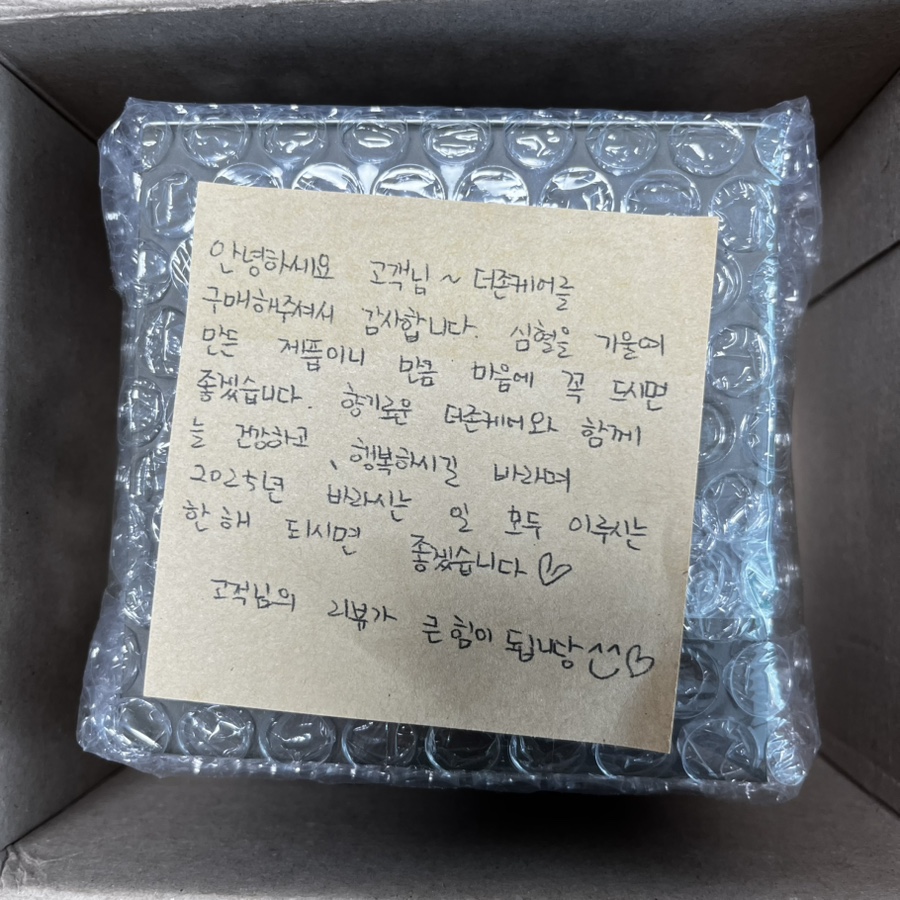 안녕하세요 고객님 ~ 더존케어를
구매해주셔서 감사합니다. 심혈을 기울여
만든 제품이니 만큼 마음에 꼭 드시면
좋겠습니다. 향기로운 더존케어와 함께
늘 건강하고, 행복하시길 바라며
2025년 바라시는 일 모두 이루시는
한해 되시면 좋겠습니다 ♡
고객님의 리뷰가 큰 힘이 됩니당 ^^♡